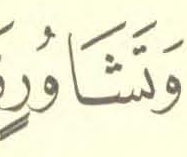 وَتَشَاوُرٍ